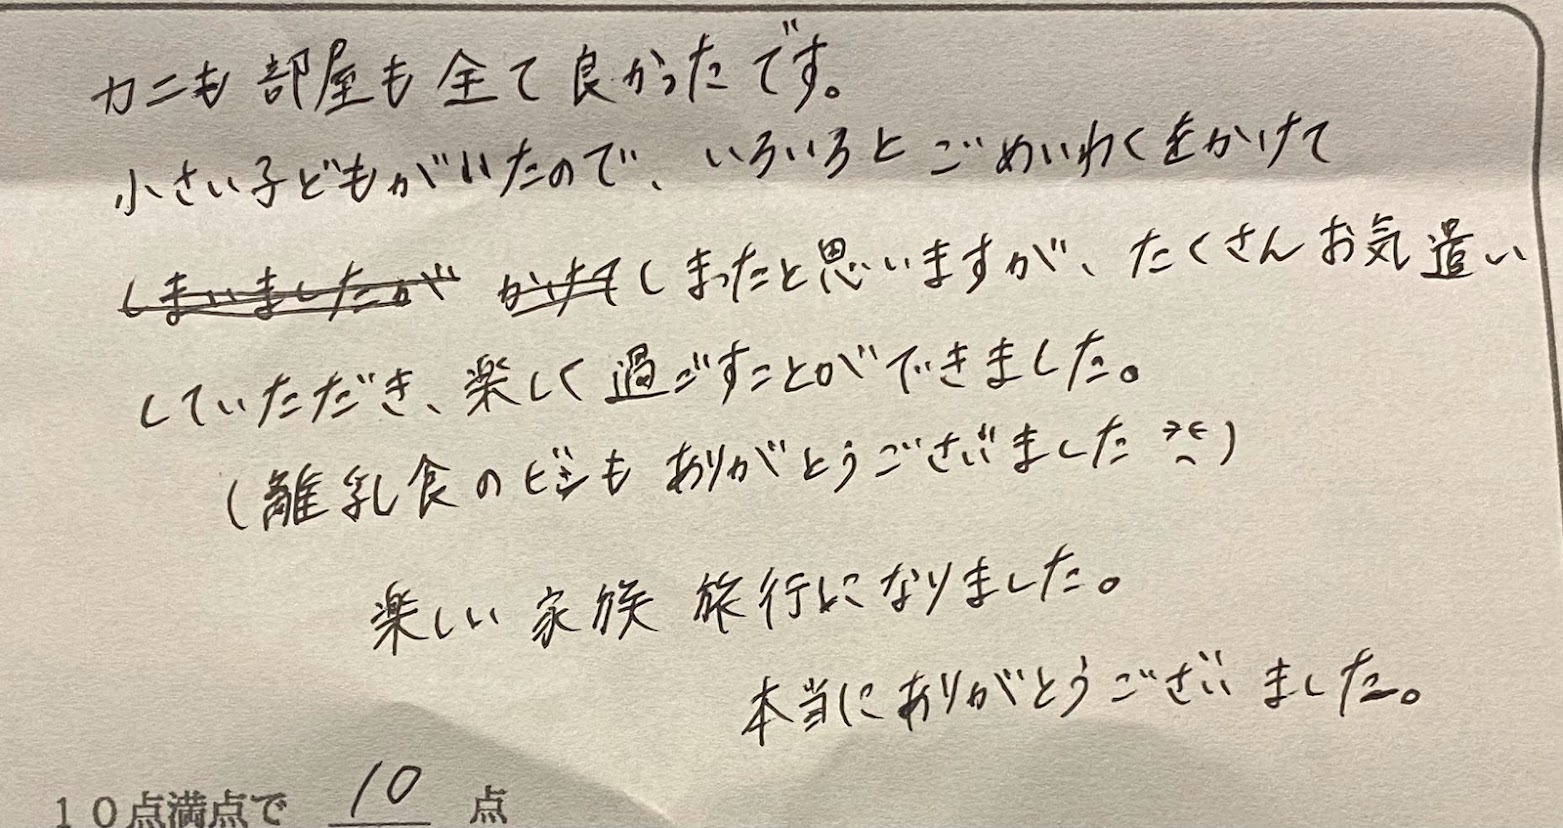 カニも部屋も全て良かったです。
小さい子どもがいたので、いろいろとごめいわくをかけて
しまいましたが かけてしまったと思いますが、たくさんお気遣い
していただき、楽しく過ごすことができました。
(離乳食のビンもありがとうございました)
楽しい家族旅行になりました。
本当にありがとうございました。
10点満点で 10 点